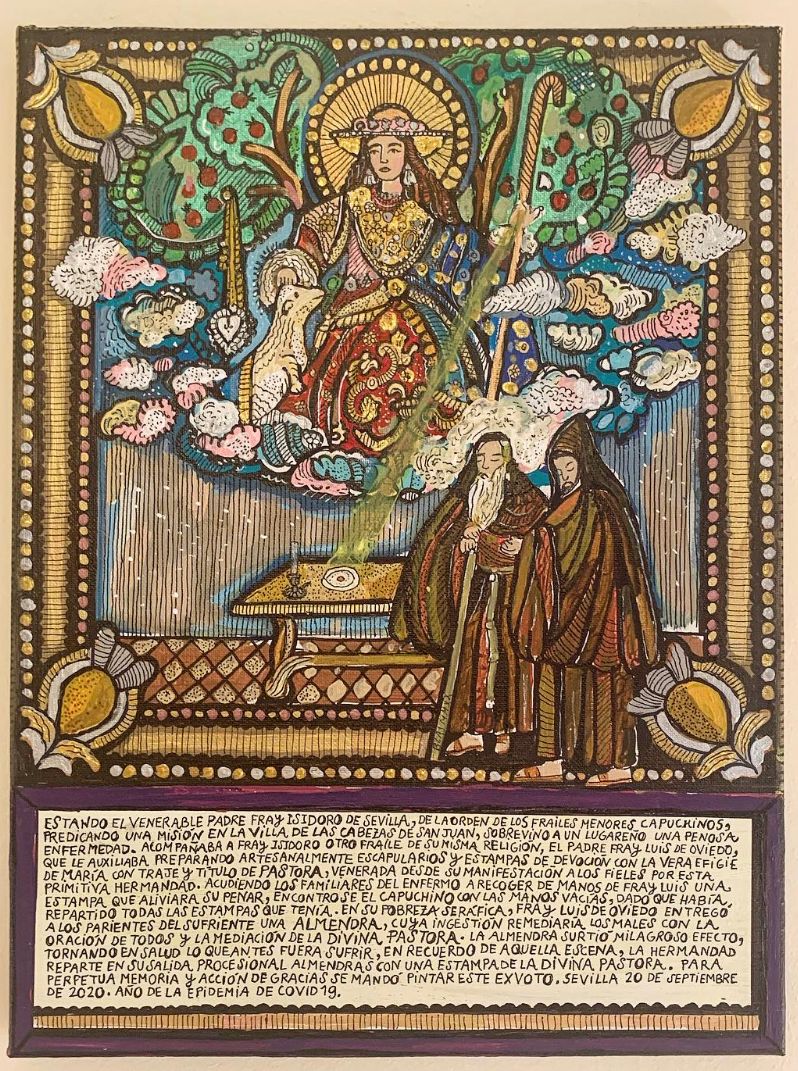 ESTANDO EL VENERABLE PADRE FRAY ISIDORO DE SEVILLA, DE LA ORDEN DE LOS FRAILES MENORES CAPUCHINOS,
PREDICANDO UNA MISIÓN EN LA VILLA DE LAS CABEZAS DE SAN JUAN, SOBREVINO A UN LUGAREÑO UNA PENOSA
ENFERMEDAD. ACOMPAÑABA A FRAY ISIDORO OTRO FRAILE DE SU MISMA RELIGIÓN, EL PADRE FRAY LUIS DE OVIEDO,
QUE LE AUXILIABA PREPARANDO ARTESANALMENTE ESCAPULARIOS Y ESTAMPAS DE DEVOCIÓN CON LA VERA EFIGIE
DE MARÍA CON TRAJE Y TÍTULO DE PASTORA, VENERADA DESDE SU MANIFESTACIÓN A LOS FIELES POR ESTA
PRIMITIVA HERMANDAD. ACUDIENDO LOS FAMILIARES DEL ENFERMO A RECOGER DE MANOS DE FRAY LUIS UNA
ESTAMPA QUE ALIVIARA SU PENAR, ENCONTROSE EL CAPUCHINO CON LAS MANOS VACÍAS, DADO QUE HABÍA
REPARTIDO TODAS LAS ESTAMPAS QUE TENÍA. EN SU POBREZA SERÁFICA, FRAY LUIS DE OVIEDO ENTREGÓ
A LOS PARIENTES DEL SUFRIENTE UNA ALMENDRA, CUYA INGESTIÓN REMEDIARÍA LOS MALES CON LA
ORACIÓN DE TODOS Y LA MEDIACIÓN DE LA DIVINA PASTORA. LA ALMENDRA SURTIÓ MILAGROSO EFECTO,
TORNANDO EN SALUD LO QUE ANTES FUERA SUFRIR, EN RECUERDO DE AQUELLA ESCENA, LA HERMANDAD
REPARTE EN SU SALIDA PROCESIONAL ALMENDRAS CON UNA ESTAMPA DE LA DIVINA PASTORA. PARA
PERPETUA MEMORIA Y ACCIÓN DE GRACIAS SE MANDÓ PINTAR ESTE EXVOTO. SEVILLA 20 DE SEPTIEMBRE
DE 2020. AÑO DE LA EPIDEMIA DE COVID 19.